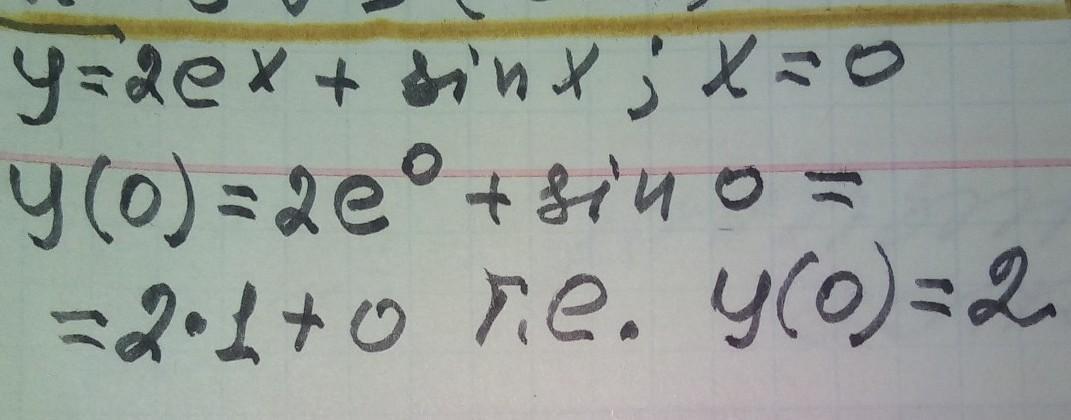 y=2eˣ + sin x ; x = 0
y(0) = 2e⁰ + sin 0 =
= 2·1 + 0 т.е. y(0) = 2